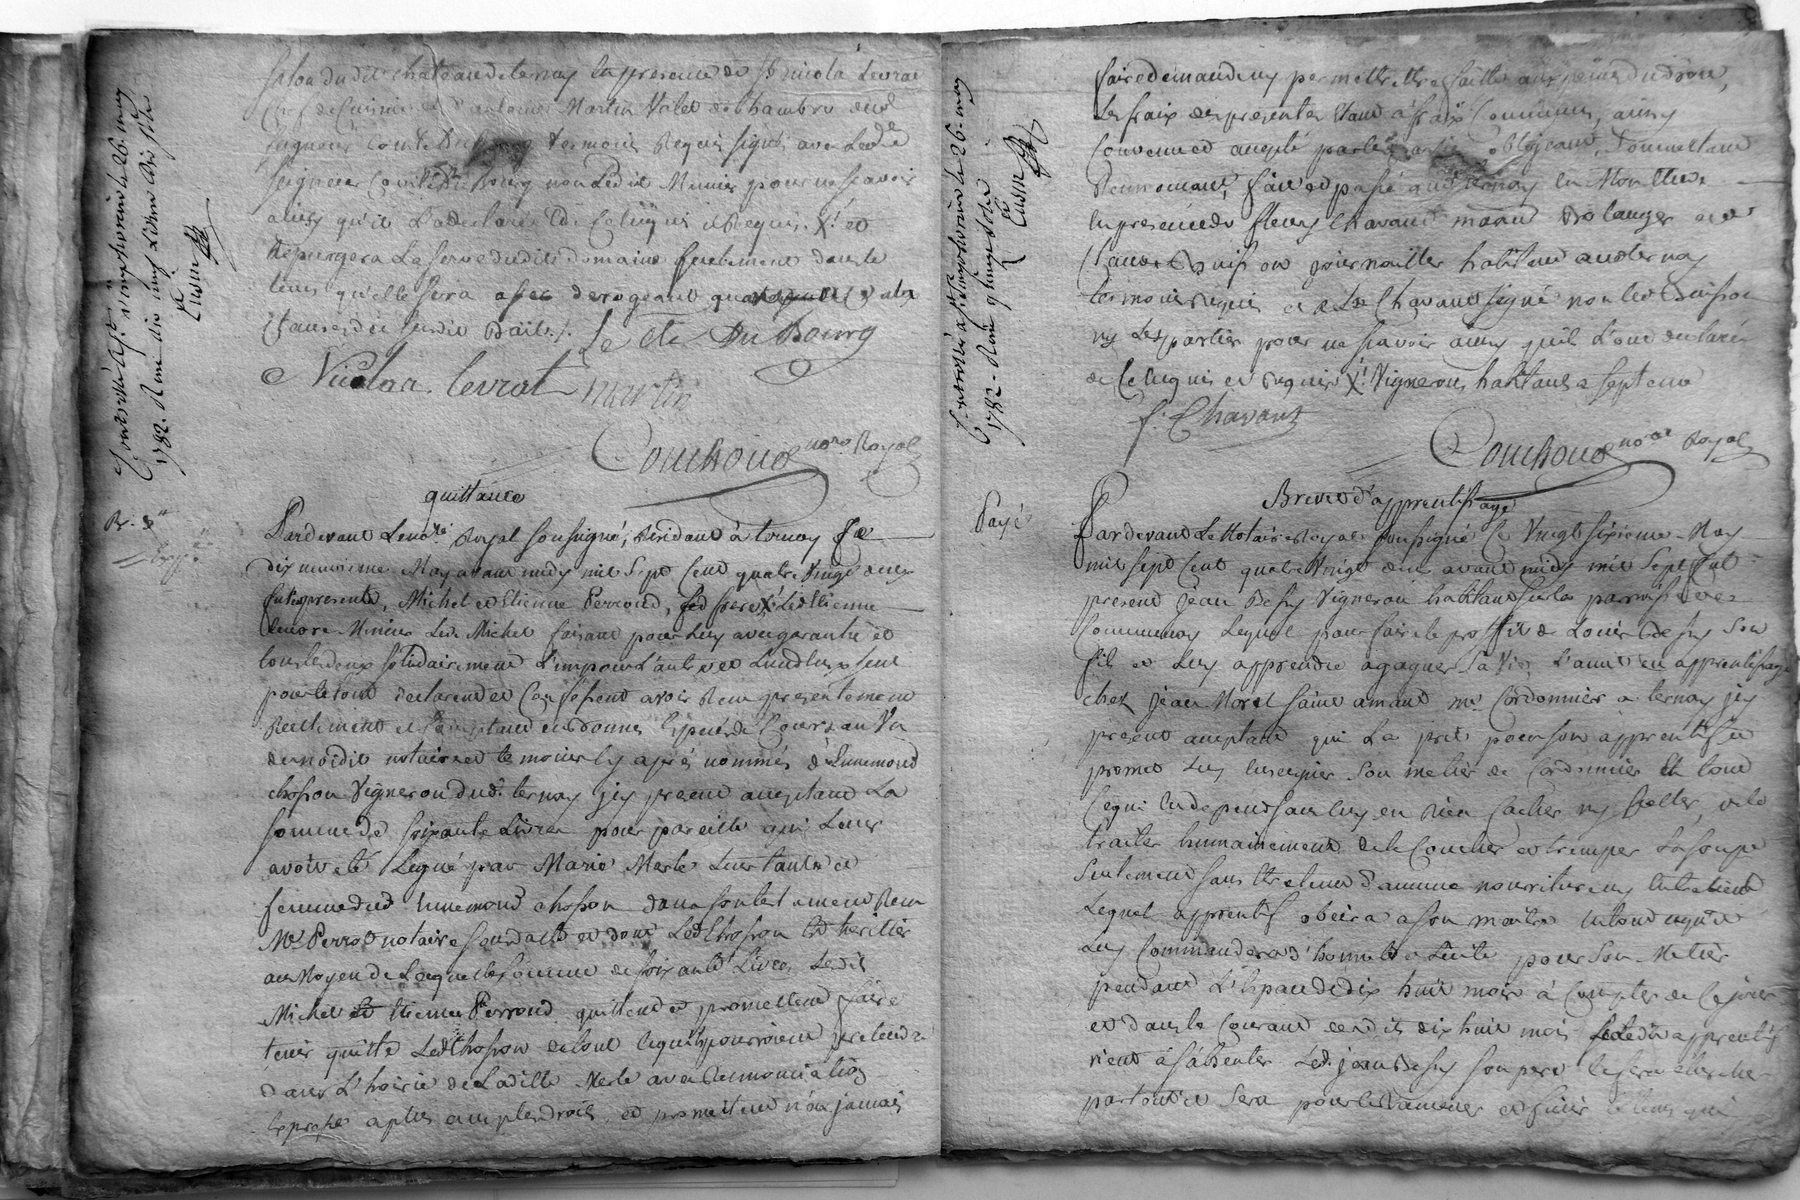 Salon dudit chateau de ternay En presence de Sr nicola Levrat
Chef de Cuisine et Antoine Martin Valet de Chambre dudt
seigneur Comte Dubourg temoins Requis signés avec Ledt
seigneur Comte Dubourg non Ledit Meunier pour ne scavoir
ainsy qu'il L'a declaré de Ce Enquis et Requis. X! et
Repurgera La serve dudit domaine seulement dans le
tems qu'elle sera a sec derogeant quant a Ce a la
Clause du susdit Bail ./.
Le Cte Du Bourg
Nicolar levrat martin
Couchoud nore Royal
quittance
Pardevant Le nore Royal soussigné, Residant à ternay Le
dix neuvieme May avant midy mil Sept Cent quatre Vingt deux
furent presents, Michel et Etienne Perroud, freres X! Ledt Etienne
encore Mineur Led. Michel faisant pour Luy avec garantie et
tous les deux solidairement L'un pour L'autre et L'un d'eux seul
pour le tout declarent et Confessent avoir Recu presentement
Reellement et Comptant en bonnes Especes de Cours au Vu
de nordit notaire et temoins Cy après nommés d'Ennemond
chosson Vigneron dudt ternay icy present acceptant La
somme de soixante Livres pour pareille qui Leur
avoit eté Leguée par Marie Merle Leur tante et
femme dud Ennemond chosson dans son testament Recu
Me Perrod notaire et dont Led Chosson Est heritier
au Moyen de Laquelle somme de soixante Livres Lesdits
Michel et Etienne Perroud quittent et promettent faire
tenir quitte Led Chosson de tout Ce qu'ils pourroient pretendre
Dans L'hoirie de Ladite Merle avec Renonciation
Expresse a plus amples droits, et promettent n'en jamais
Controllé a St simphorien le 26. may
1782. Reçu
Cusin
faire demande ny permettre Etre faitte aux peines du droit,
Les fraix des presentes Etant à fraix Communs, ainsy
Convenu et accepté par les parties obligeant, Soumettant
Renoncant, fait et passé audit ternay En Mon Etude
En presence de fleury Chavant maitre Boulanger et de
Claude Buisson journailler habitant audt ternay
temoins requis et Led Chavant signé non Led Buisson
ny Les parties pour ne scavoir ainsy qu'il L'ont declaré
de Ce Enquis et Requis X! Vignerons habitants a Septeme
f. Chavant
Couchoud nore Royal
Brevet d'apprentissage
Payé
Pardevant Le Notaire Royal soussigné Ce Vingt sixieme May
mil sept Cent quatre Vingt deux avant midy mil Sept Cent
present jean Bessy Vigneron habitant sur la paroisse de
Communay Lequel pour faire le proffit de Louis Bessy son
fils et Luy apprendre a gagner sa Vie L'a mis en apprentissage
chez jean Morel saint amant me Cordonnier a ternay icy
present acceptant qui La pris pour son apprentif et
promet Luy Enseigner son metier de Cordonnier Et tout
Ce qui En depend sans luy en Rien Cacher ny Celler, de le
traiter humainement de le Coucher et tremper La soupe
Seulement sans Etre tenu d'aucune nourriture ny Entretient
Lequel apprentif obeira a son maitre En tout ce qu'il
Luy Commandera d'honnete et Licite pour son Metier
pendant L'Espace de dix huit mois à Compter de Ce jour
et dans le Courant desdits dix huit mois Ledit apprentif
vient à s'absenter Led. jean Bessy son pere le fera chercher
partout ou sera pour le Ramener et finir le tems qui
Controllé a St simphorien le 26. may
1782. Reçu
Cusin